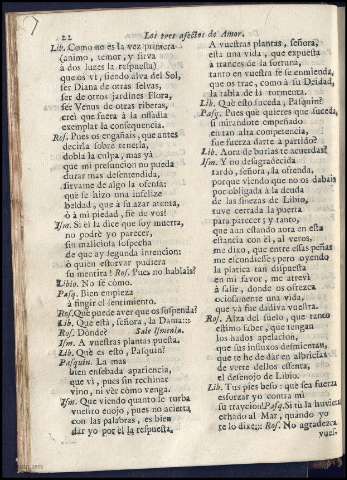 22 Los tres afectos de Amor.
Lib. Como no es la vez primera
(animo, temor, y sirva
à dos luzes la respuesta)
que os vi, siendo alva del Sol,
ser Diana de otras selvas,
ser de otros jardines Flora,
ser Venus de otras riberas,
crei que fuera à la ossadia
exemplar la consequencia.
Ros. Pues os engañais, que antes
decirla sobre tenerla,
dobla la culpa, mas yà
que mi presuncion no pueda
durar mas desentendida,
sirvame de algo la ofensa:
que se hizo una infelize
beldad, que à su azar atenta,
ò à mi piedad, fie de vos?
Ism. Si èl la dice que soy muerta,
no podrè yo parecer,
sin maliciosa sospecha
de que ay segunda intencion:
ò quien estorvar pudiera
su mentira! Ros. Pues no hablais?
Libio. No sè còmo.
Pasq. Bien empieza
à fingir el sentimiento.
Ros. Què puede aver que os suspenda?
Lib. Que està, señora, la Dama::
Ros. Dònde? Sale Ismenia.
Ism. A vuestras plantas puesta.
Lib. Què es esto, Pasquin?
Pasquin. La mas
bien ensebada apariencia,
que vi, pues sin rechinar
vino, ni vèr còmo venga.
Ism. Que viendo quanto se turba
vuestro enojo, pues no acierta
con las palabras, es bien
dar yo por èl la respuesta.
A vuestras plantas, señora,
està una vida, que expuesta
à trances de la fortuna,
tanto en vuestra fè se enmienda,
que os trae, como à su Deidad,
la tabla de la tormenta.
Lib. Què esto suceda, Pasquin?
Pasq. Pues què quieres que suceda,
si mirandote empeñado
en tan alta competencia,
fue fuerza darte à partido?
Lib. Aora de burlas te acuerdas?
Ism. Y no desagradecida
tardo, señora, la ofrenda,
porque viendo que no os dabais
por obligada à la deuda
de las finezas de Libio,
tuve cerrada la puerta
para parecer; y tanto,
que aun estando aora en esta
estancia con èl, al veros,
me dixo, que entre essas peñas
me escondiesse; pero oyendo
la platica tan dispuesta
en mi favor, me atrevì
à salir, donde os ofrezca
ociosamente una vida,
que yà fue dadiva vuestra.
Ros. Alza del suelo, que tanto
estimo saber, que tengan
los hados apelacion,
que sus influxos desmientan,
que te he de dàr en albricias
de verte dellos essenta,
el desenojo de Libio.
Lib. Tus pies beso: què sea fuerza
esforzar yo contra mi
su traycion! Pasq. Si tù la huvieras
echado al Mar, quando yo
te lo dixe:: Ros. No agradezca
vues-